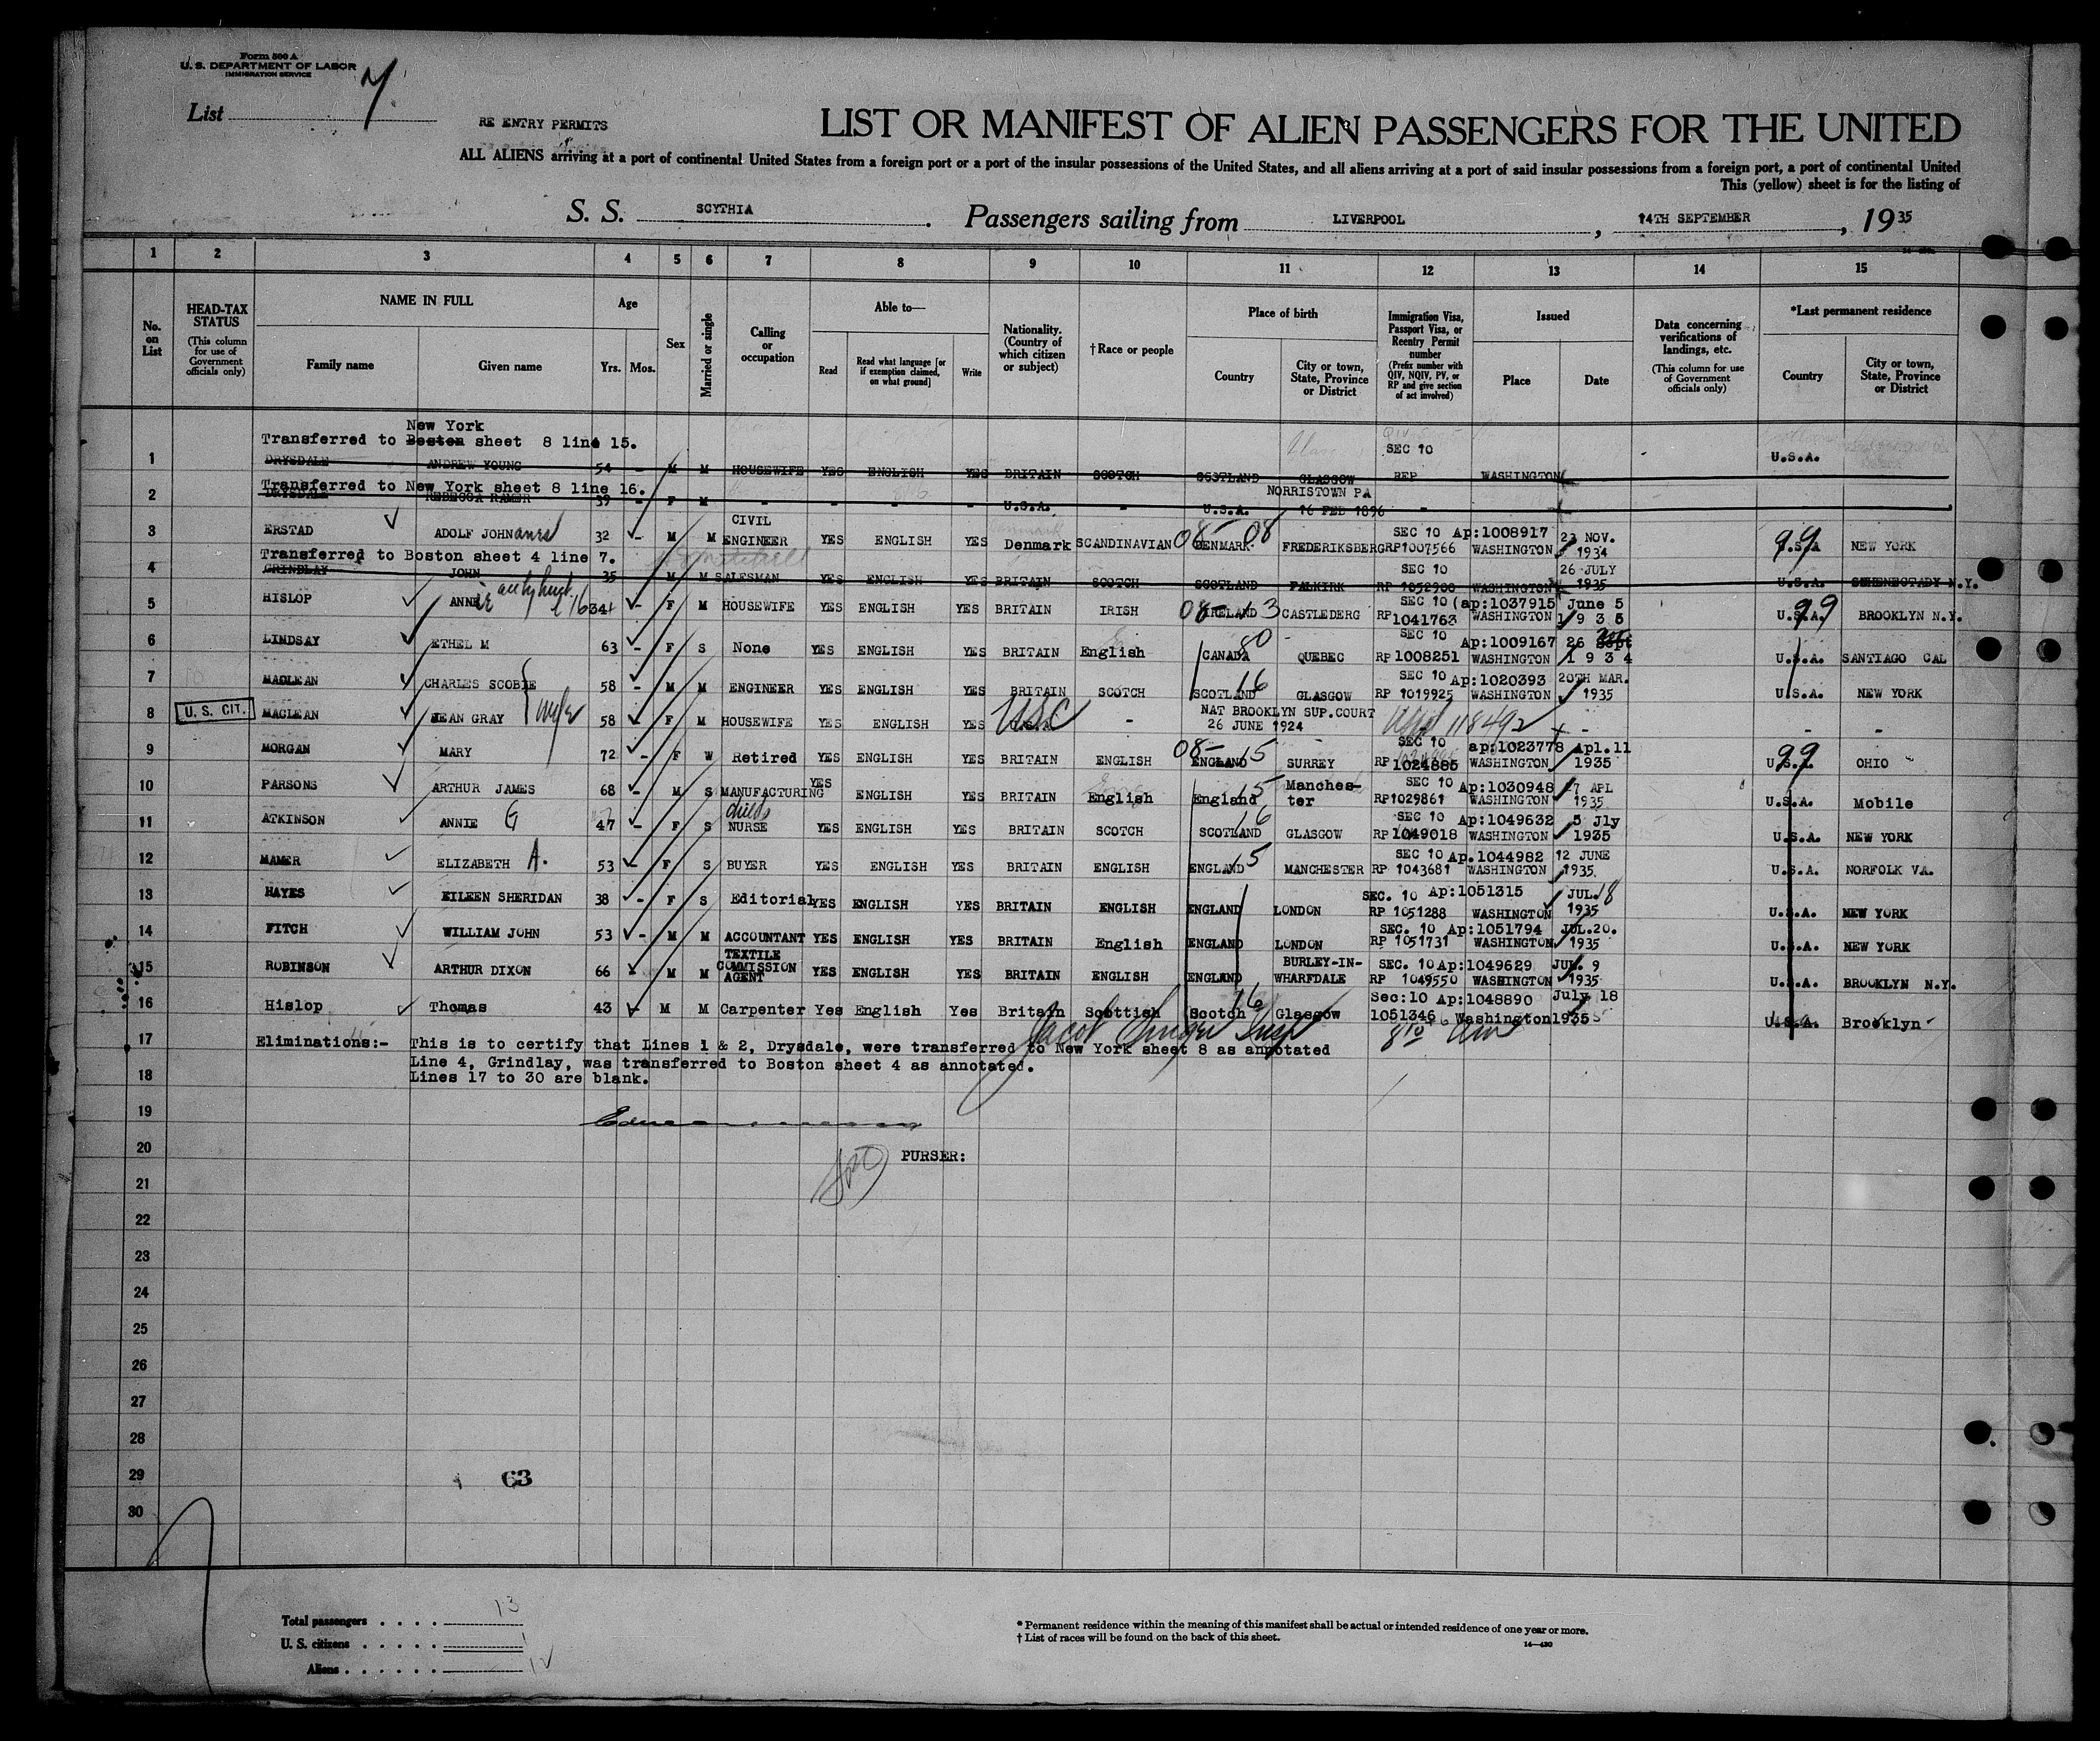 Form 500 A
U. S. DEPARTMENT OF LABOR
IMMIGRATION SERVICE
List 7.
RE ENTRY PERMITS
LIST OR MANIFEST OF ALIEN PASSENGERS FOR THE UNITED
ALL ALIENS arriving at a port of continental United States from a foreign port or a port of the insular possessions of the United States, and all aliens arriving at a port of said insular possessions from a foreign port, a port of continental United
This (yellow) sheet is for the listing of
S. S. SCYTHIA. Passengers sailing from LIVERPOOL, 14TH SEPTEMBER, 1935
1 2 3 4 5 6 7 8 9 10 11 12 13 14 15
No. on List
HEAD-TAX STATUS (This column for use of Government officials only)
NAME IN FULL
Family name Given name
Age Yrs. Mos.
Sex
Married or single
Calling or occupation
Able to—
Read Read what language [or if exemption claimed, on what ground] Write
Nationality. (Country of which citizen or subject)
†Race or people
Place of birth
Country City or town, State, Province or District
Immigration Visa, Passport Visa, or Reentry Permit number (Prefix number with QIV, NQIV, PV, or RP and give section of act involved)
Issued
Place Date
Data concerning verifications of landings, etc. (This column for use of Government officials only)
*Last permanent residence
Country City or town, State, Province or District
New York
Transferred to Boston sheet 8 line 15. SEC 10
1 DRYSDALE ANDREW YOUNG 54 - M M HOUSEWIFE YES ENGLISH YES BRITAIN SCOTCH SCOTLAND GLASGOW REP WASHINGTON U.S.A.
Transferred to New York sheet 8 line 16. NORRISTOWN PA
2 DRYSDALE REBECCA RAMER 39 - F M - - - - U.S.A. - U.S.A. 16 FEB 1896 -
3 ERSTAD ADOLF JOHN 32 - M M CIVIL ENGINEER YES ENGLISH YES Denmark SCANDINAVIAN 08- DENMARK 08 FREDERIKSBERG SEC 10 Ap:1008917 RP1007566 WASHINGTON 23 NOV. 1934 99 U.S.A NEW YORK
Transferred to Boston sheet 4 line 7.
4 GRINDLAY JOHN 35 M M SALESMAN YES ENGLISH YES BRITAIN SCOTCH SCOTLAND FALKIRK SEC 10 RP 1052988 WASHINGTON 26 JULY 1935 U.S.A. SCHENECTADY N.Y.
5 HISLOP ANNE 34 - F M HOUSEWIFE YES ENGLISH YES BRITAIN IRISH 08- IRELAND 13 CASTLEDERG SEC 10 (ap:1037915 RP 1041763 WASHINGTON June 5 1935 99 U.S.A. BROOKLYN N.Y.
6 LINDSAY ETHEL M 63 - F S None YES ENGLISH YES BRITAIN English CANADA 80 QUEBEC SEC 10 Ap:1009167 RP 1008251 WASHINGTON 26 Sept 1934 U.S.A. SANTIAGO CAL
7 MACLEAN CHARLES SCOBIE 58 - M M ENGINEER YES ENGLISH YES BRITAIN SCOTCH SCOTLAND 16 GLASGOW SEC 10 Ap:1020393 RP 1019925 WASHINGTON 20TH MAR. 1935 U.S.A. NEW YORK
8 U. S. CIT. MACLEAN JEAN GRAY wife 58 - F M HOUSEWIFE YES ENGLISH YES USC U.S.A. - NAT BROOKLYN SUP.COURT 26 JUNE 1924 118492 - - -
9 MORGAN MARY 72 - F W Retired YES ENGLISH YES BRITAIN ENGLISH 08- ENGLAND 15 SURREY SEC 10 ap:1023778 RP 1024885 WASHINGTON Apl.11 1935 99 U.S.A. OHIO
10 PARSONS ARTHUR JAMES 68 - M S MANUFACTURING YES ENGLISH YES BRITAIN English England 15 Manches-ter SEC 10 Ap:1030948 RP1029861 WASHINGTON 17 APL 1935 U.S.A. Mobile
11 ATKINSON ANNIE G 47 - F S childs NURSE YES ENGLISH YES BRITAIN SCOTCH SCOTLAND 16 GLASGOW SEC 10 Ap:1049632 RP 1049018 WASHINGTON 5 Jly 1935 U.S.A. NEW YORK
12 MAMER ELIZABETH A. 53 F S BUYER YES ENGLISH YES BRITAIN ENGLISH ENGLAND 15 MANCHESTER SEC 10 Ap.1044982 RP 1043681 WASHINGTON 12 JUNE 1935 U.S.A. NORFOLK VA.
13 HAYES EILEEN SHERIDAN 38 - F S Editorial YES ENGLISH YES BRITAIN ENGLISH ENGLAND LONDON SEC. 10 Ap:1051315 RP 1051288 WASHINGTON JUL.18 1935 U.S.A. NEW YORK
14 FITCH WILLIAM JOHN 53 - M M ACCOUNTANT YES ENGLISH YES BRITAIN English ENGLAND LONDON SEC. 10 Ap:1051794 RP 1051731 WASHINGTON JUL.20. 1935 U.S.A. NEW YORK
15 ROBINSON ARTHUR DIXON 66 - M M TEXTILE COMMISSION AGENT YES ENGLISH YES BRITAIN ENGLISH ENGLAND BURLEY-IN-WHARFDALE SEC. 10 Ap:1049629 RP 1049550 WASHINGTON JUL. 9 1935 U.S.A. BROOKLYN N.Y.
16 Hislop Thomas 43 - M M Carpenter Yes English Yes Britain Scottish Scotch 16 Glasgow Sec:10 Ap:1048890 1051346 Washington July 18 1935 U.S.A. Brooklyn
17 Eliminations:- This is to certify that Lines 1 & 2, Drysdale, were transferred to New York sheet 8 as annotated
Line 4, Grindlay, was transferred to Boston sheet 4 as annotated.
18 Lines 17 to 30 are blank.
19
20 PURSER:
21
22
23
24
25
26
27
28
29 63
30
Total passengers . . . . 13
U. S. citizens . . . . . 1
Aliens . . . . . . 12
* Permanent residence within the meaning of this manifest shall be actual or intended residence of one year or more.
† List of races will be found on the back of this sheet.
14—430